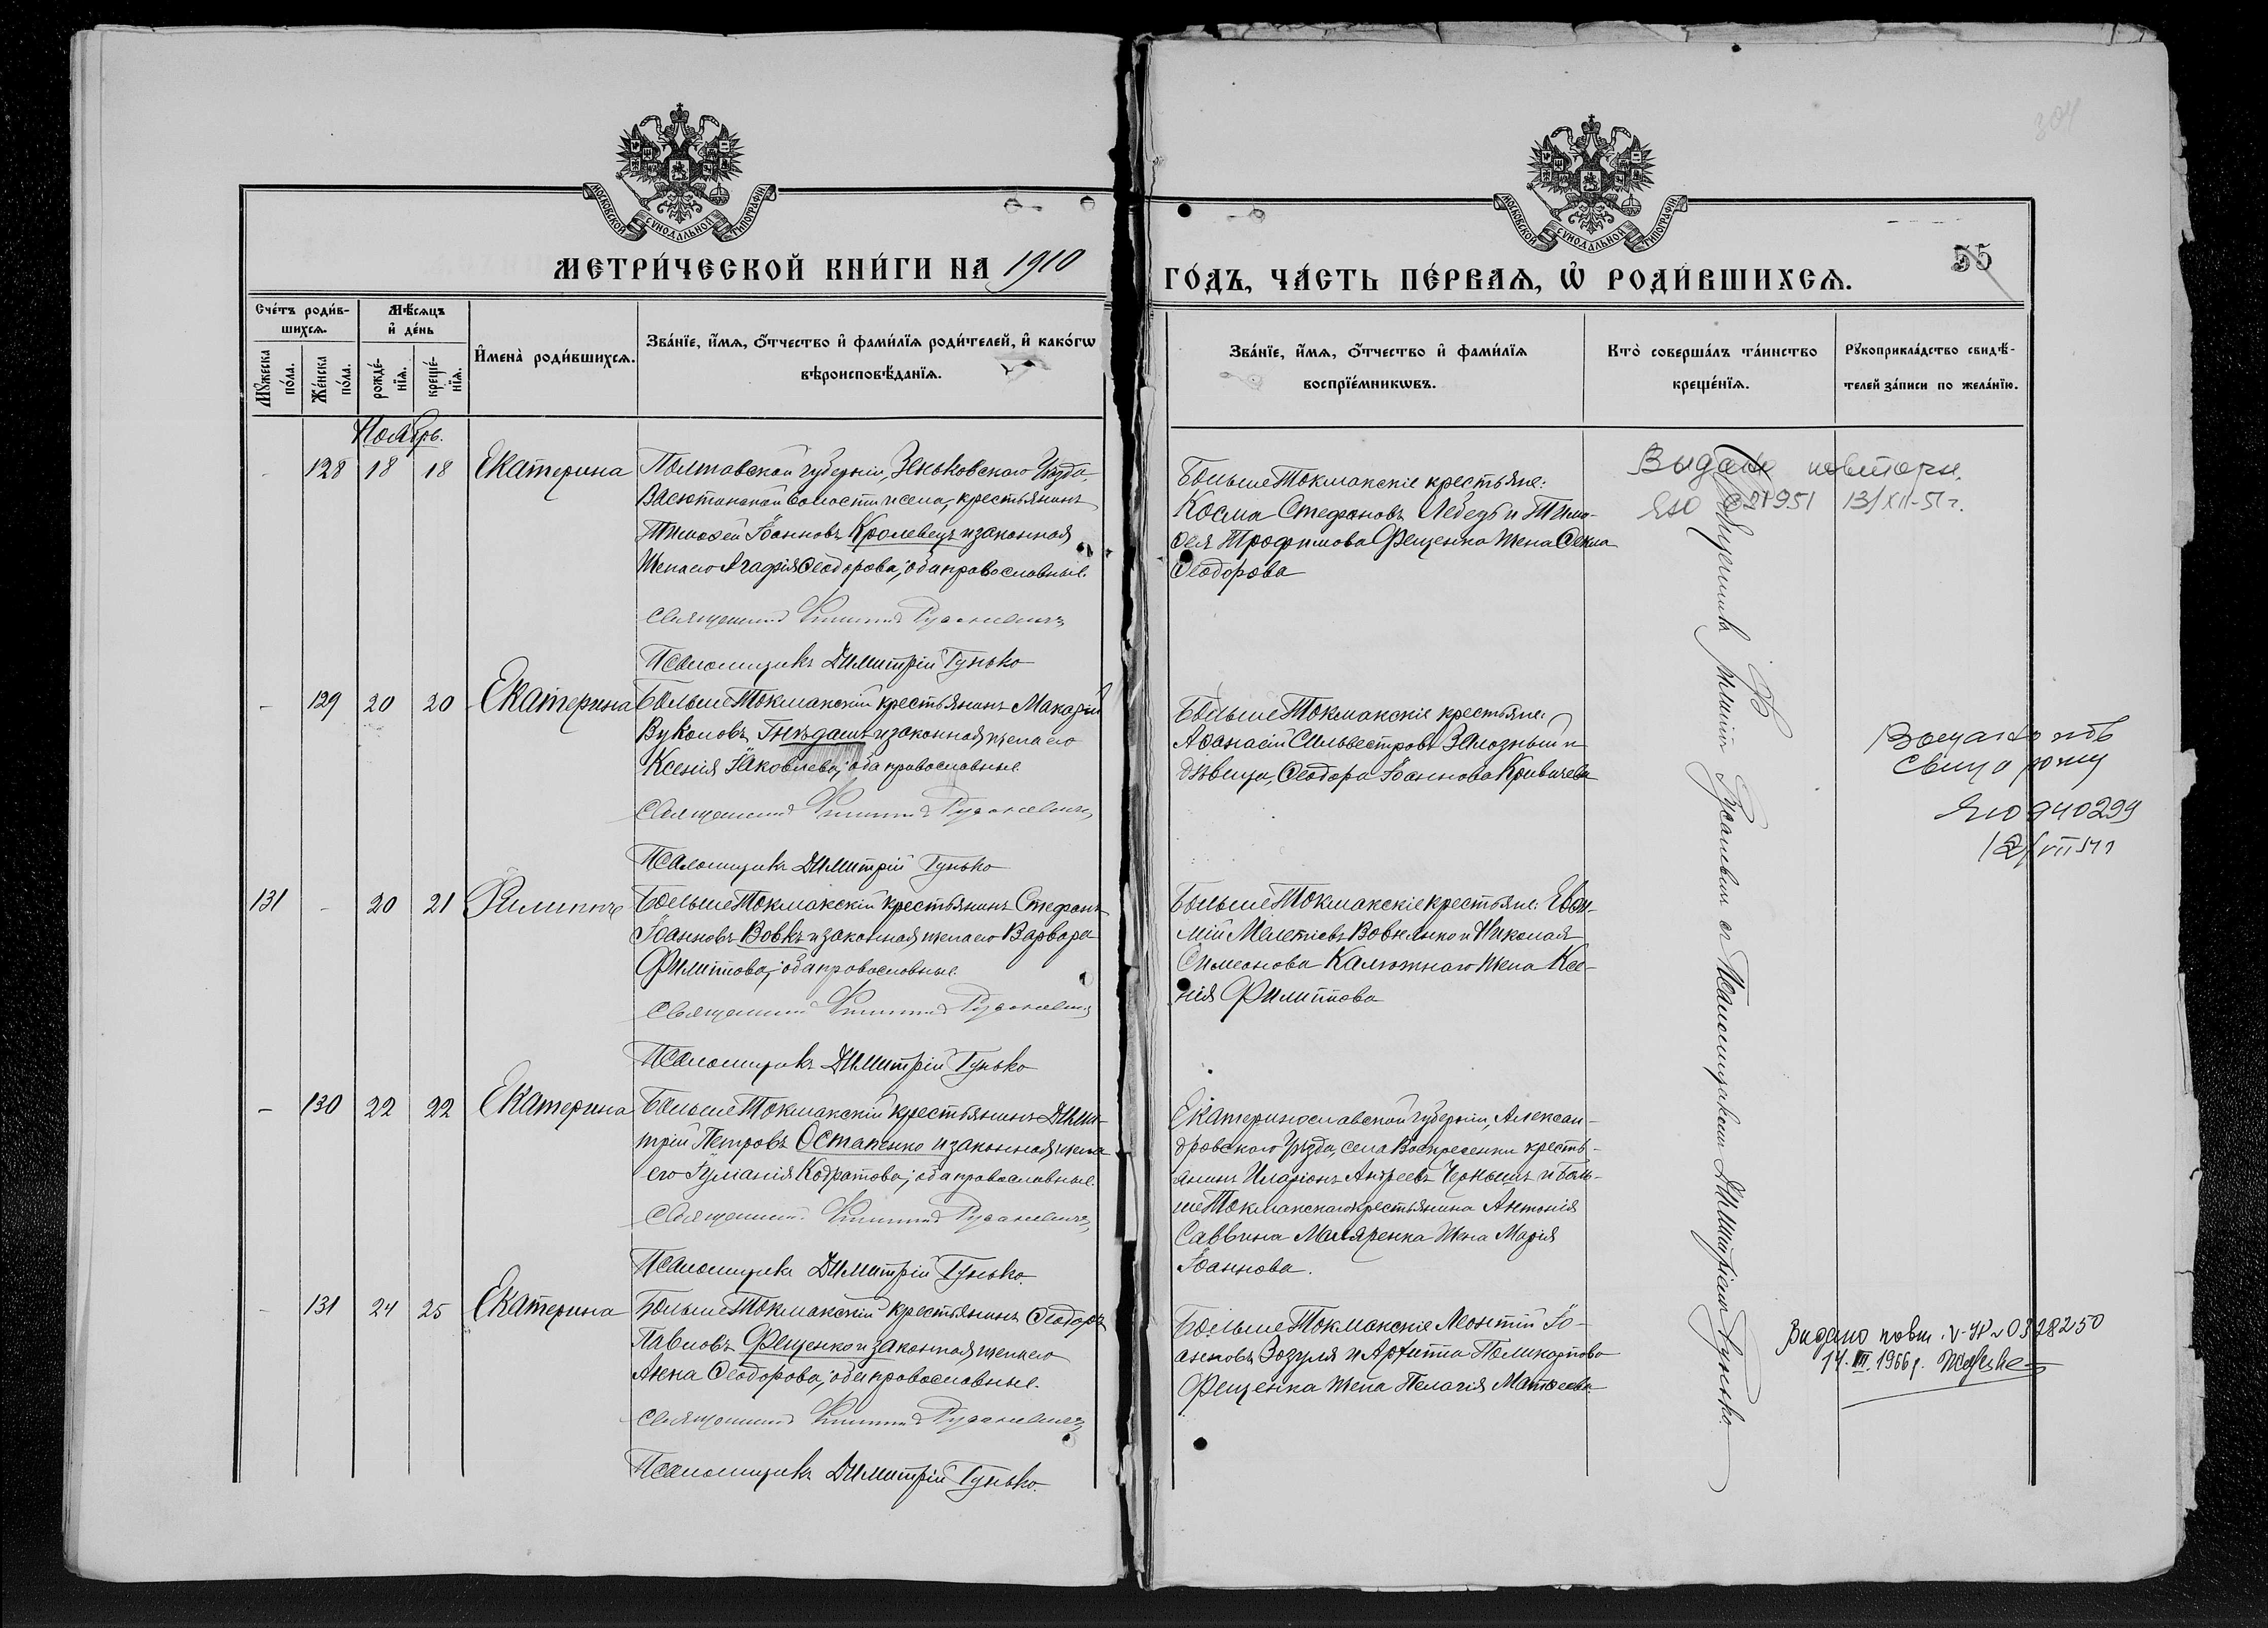 304
МОСКОВСКОЙ СУНОДАЛЬНОЙ ТИПОГРАФІИ
МОСКОВСКОЙ СУНОДАЛЬНОЙ ТИПОГРАФІИ
МЕТРИ́ЧЕСКОЙ КНИ́ГИ НА 1910
ГО́ДЪ, ЧА́СТЬ ПЕ́РВАѦ, Ѡ҆ РОДИ́ВШИХСѦ.
55
Сче́тъ роди́в-
шихсѧ.
Мꙋ́жеска по́ла.
Же́нска по́ла.
Мѣ́сяцъ
и҆ де́нь
рожде́-нїѧ.
креще́-нїѧ.
И҆мена̀ роди́вшихсѧ.
Зва́нїе, и҆́мѧ, ѻ҆́тчество и҆ фами́лїѧ роди́телей, и҆ како́гѡ
вѣроисповѣ́данїѧ.
Зва́нїе, и҆́мѧ, ѻ҆́тчество и҆ фами́лїѧ
воспрїе́мникѡвъ.
Кто̀ соверша́лъ та́инство
креще́нїѧ.
Рꙋкоприкла́дство свидѣ́-
телей за́писи по жела́нїю.
Ноябрь.
- 128 18 18 Екатерина
Полтавской губерніи, Зеньковскаго Уѣзда,
волости и села, крестьянинъ
Тимоѳей Іоанновъ Кролевецъ и законная
жена его Агафія Ѳеодорова; оба православные.
Священникъ Русаневичъ
Псаломщикъ Димитрій Гунько
БольшеТокмакскіе крестьяне:
Косма Стефановъ Лебедь и Тимо-
ѳея Трофимова Фещенка жена Ѳекла
Ѳеодорова
Видано повторн.
021951 13/XII-51г.
- 129 20 20 Екатерина
БольшеТокмакскій крестьянинъ Макарій
Вуколовъ Гнѣдашъ и законная жена его
Ксенія Іаковлева; оба православные.
Священникъ Русаневичъ
Псаломщикъ Димитрій Гунько
БольшеТокмакскіе крестьяне:
Аѳанасій Сильвестровъ Залозный и
дѣвица, Ѳеодора Іоаннова Кривичева
940299
12/VII 51г
131 - 20 21 Филиппъ
БольшеТокмакскій крестьянинъ Стефанъ
Іоанновъ Вовкъ и законная жена его Варвара
Филиппова; оба православные.
Священникъ Русаневичъ
Псаломщикъ Димитрій Гунько
БольшеТокмакскіе крестьяне: Евѳи-
мій Мелетіевъ Вовненко и Николая
Симеонова Калюжнаго жена Ксе-
нія Филиппова
- 130 22 22 Екатерина
БольшеТокмакскій крестьянинъ Дими-
трій Петровъ Остапенко и законная жена
его Іуліанія Кодратова; оба православные.
Священникъ Русаневичъ
Псаломщикъ Димитрій Гунько.
Екатеринославской губерніи, Алексан-
дровскаго уѣзда, села Воскресенки кресть-
янинъ Иларіонъ Андреевъ Чернышъ и Боль-
шеТокмакскаго крестьянина Антонія
Саввина Маляренка жена Марія
Іоаннова.
- 131 24 25 Екатерина
БольшеТокмакскій крестьянинъ Ѳеодоръ
Павловъ Фещенко и законная жена его
Анна Ѳеодорова; оба православные.
Священникъ Русаневичъ
Псаломщикъ Димитрій Гунько.
БольшеТокмакскіе Леонтій Іо-
анновъ Зозуля и Архиппа Поликарпова
Фещенка жена Пелагія Матѳеева
Священникъ Русаневичъ съ Псаломщикомъ Димитріемъ Гунько.
Видано повт. V-УР № 0328250
14.III.1966р.